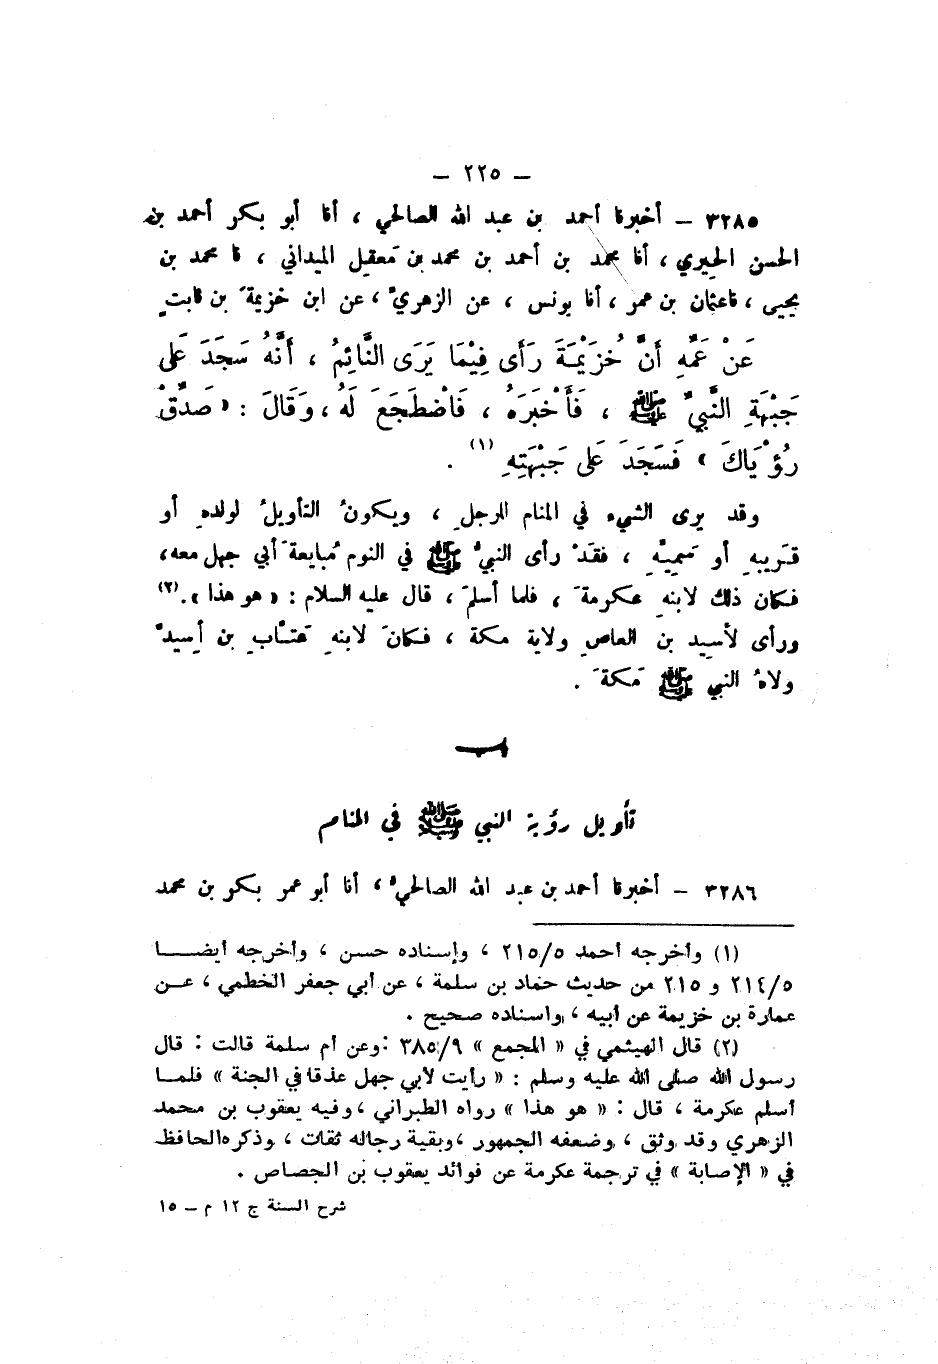 – ٢٢٥ –
٣٢٨٥ – أخبرنا أحمد بن عبد الله الصالحي ، أنا أبو بكر أحمد بن
الحسن الحِيري ، أنا محمد بن أحمد بن محمد بن مَعقِل الميداني ، نا محمد بن
يحيى ، نا عثمان بن عمر ، أنا يونس ، عن الزهريِّ ، عن ابن خزيمةَ بن ثابتٍ
عَنْ عَمِّهِ أَنَّ خُزَيْمَةَ رَأَى فِيْمَا يَرَى النَّائِمُ ، أَنَّهُ سَجَدَ عَلَى
جَبْهَةِ النَّبِيِّ ﷺ ، فَأَخْبَرَهُ ، فَاضْطَجَعَ لَهُ ، وَقَالَ : « صَدِّقْ
رُؤْيَاكَ » فَسَجَدَ عَلَى جَبْهَتِهِ (١) .
وقد يرى الشيء في المنام الرجلُ ، ويكونُ التأويلُ لولدهِ أو
قَريبهِ أو سَمِيِّهِ ، فقَدْ رأى النبيُّ ﷺ في النوم مُبايعةَ أبي جهل معه ،
فكان ذلك لابنهِ عكرمةَ ، فلما أسلمَ ، قال عليه السلام : « هو هذا » .(٢)
ورأى لأَسِيد بن العاصِ ولاية مكة ، فكانَ لابنهِ عَتَّابِ بن أَسِيدٍ
ولاهُ النبي ﷺ مَكةَ .
باب
تأويل رؤية النبي ﷺ في المنام
٣٢٨٦ – أخبرنا أحمد بن عبد الله الصالحيُّ ، أنا أبو عمر بكر بن محمد
(١) وأخرجه أحمد ٢١٥/٥ ، وإسناده حسن ، وأخرجه أيضا
٢١٤/٥ و ٢١٥ من حديث حماد بن سلمة ، عن أبي جعفر الخطمي ، عن
عمارة بن خزيمة عن أبيه ، وإسناده صحيح .
(٢) قال الهيثمي في « المجمع » ٣٨٥/٩ : وعن أم سلمة قالت : قال
رسول الله صلى الله عليه وسلم : « رأيت لأبي جهل عذقا في الجنة » فلما
أسلم عكرمة ، قال : « هو هذا » رواه الطبراني ، وفيه يعقوب بن محمد
الزهري وقد وثق ، وضعفه الجمهور ، وبقية رجاله ثقات ، وذكره الحافظ
في « الإصابة » في ترجمة عكرمة عن فوائد يعقوب بن الجصاص .
شرح السنة ج ١٢ م – ١٥